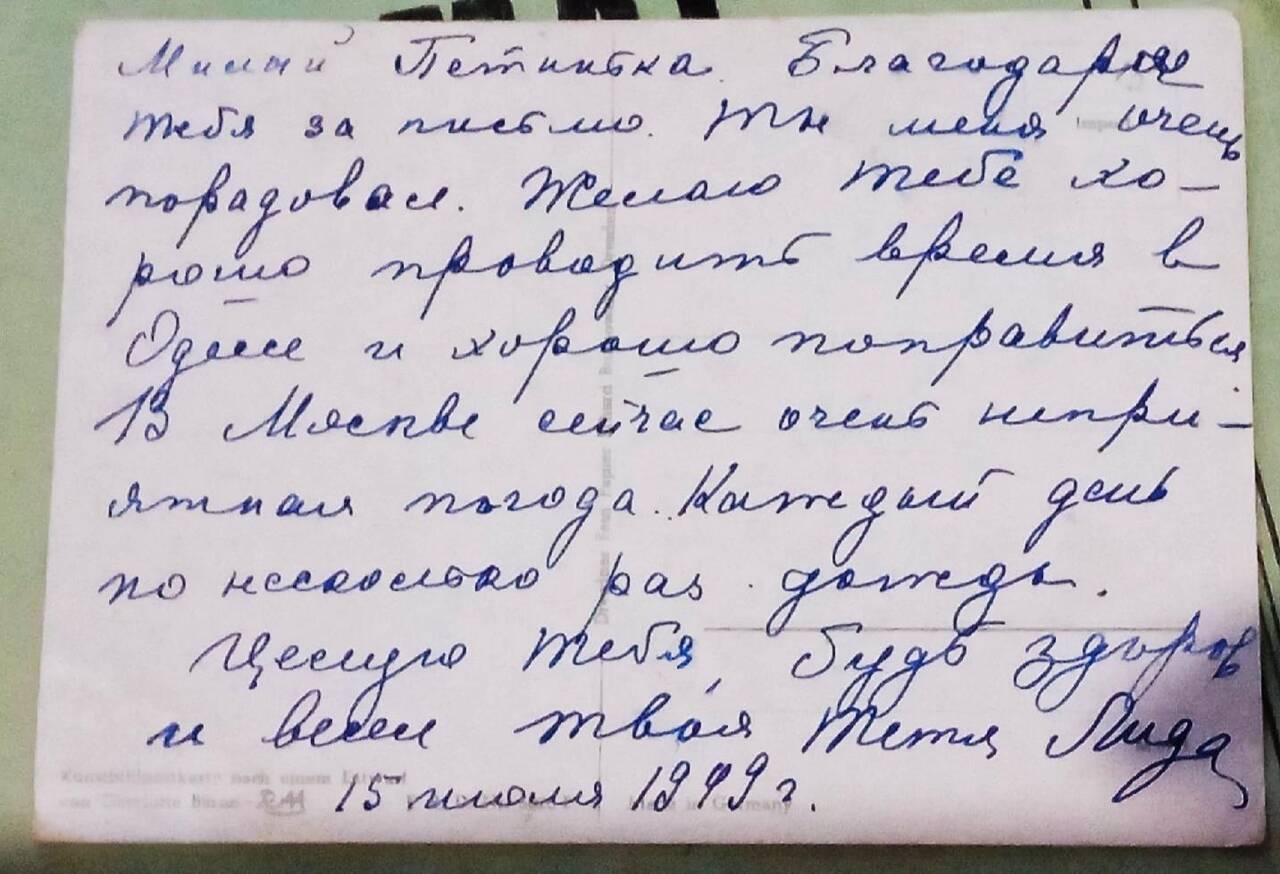 Милый Петинька. Благодарю
тебя за письмо. Ты меня очень
порадовал. Желаю тебе хо-
рошо проводить время в
Одессе и хорошо поправиться
В Москве сейчас очень непри-
ятная погода. Каждый день
по несколько раз дождь.
Целую тебя, будь здоров
и весел твоя тетя Лида
15 июля 1949 г.
Made in Germany